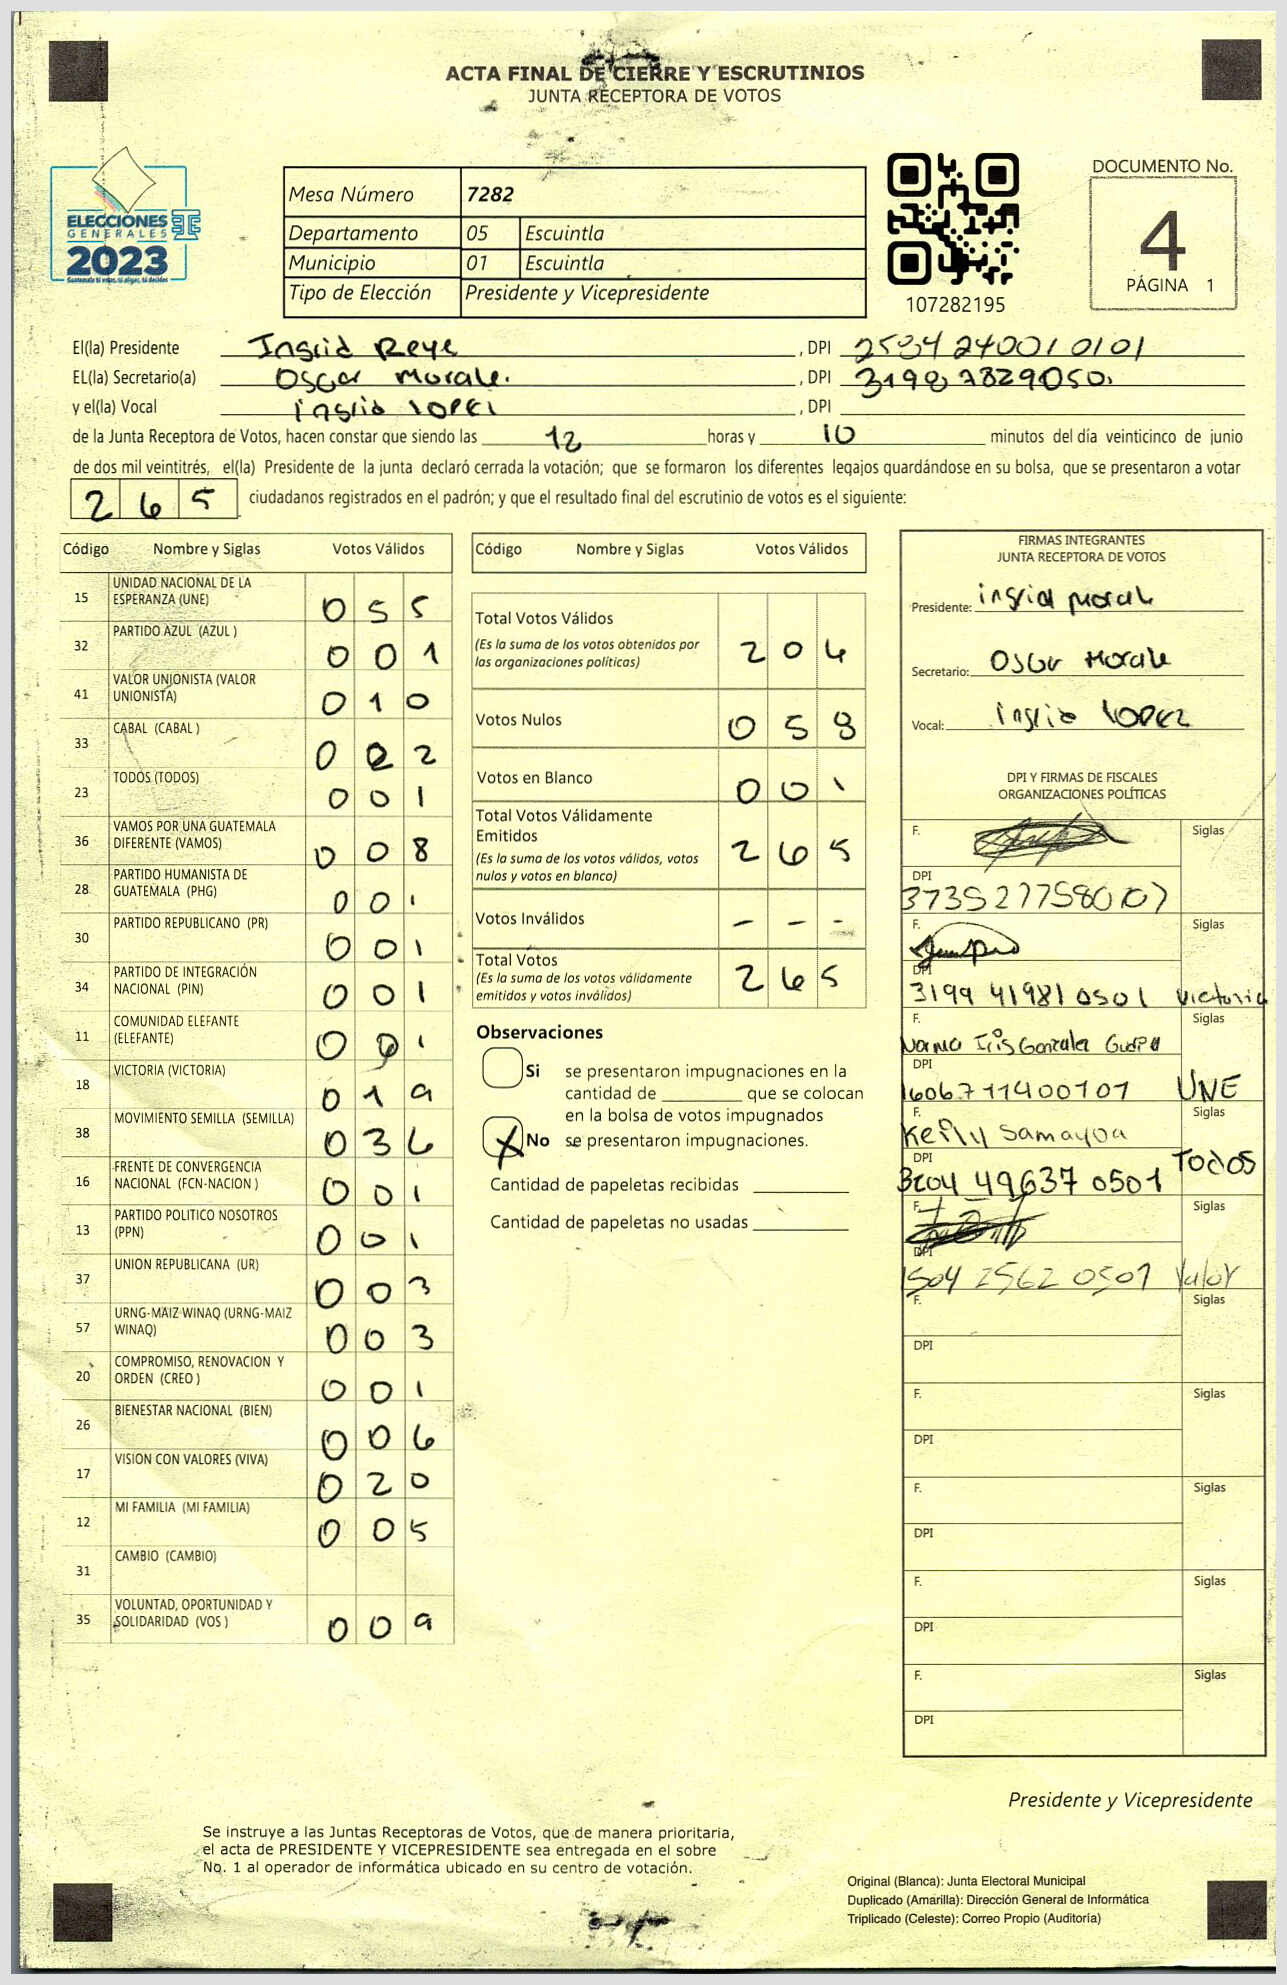 ACTA FINAL DE CIERRE Y ESCRUTINIOS
JUNTA RECEPTORA DE VOTOS
ELECCIONES
GENERALES
2023
Guatemala ti votas, ti eliges, ti decides
Mesa Número 7282
Departamento 05 Escuintla
Municipio 01 Escuintla
Tipo de Elección Presidente y Vicepresidente
107282195
DOCUMENTO No.
4
PÁGINA 1
El(la) Presidente Ingrid Reye , DPI 2534 24001 0101
EL(la) Secretario(a) Oscar Morale. , DPI 3198 7829050.
y el(la) Vocal ingrid LOPEZ , DPI
de la Junta Receptora de Votos, hacen constar que siendo las 12 horas y 10 minutos del día veinticinco de junio
de dos mil veintitrés, el(la) Presidente de la junta declaró cerrada la votación; que se formaron los diferentes legajos guardándose en su bolsa, que se presentaron a votar
2 6 5 ciudadanos registrados en el padrón; y que el resultado final del escrutinio de votos es el siguiente:
Código Nombre y Siglas Votos Válidos
15 UNIDAD NACIONAL DE LA ESPERANZA (UNE) 0 5 5
32 PARTIDO AZUL (AZUL ) 0 0 1
41 VALOR UNIONISTA (VALOR UNIONISTA) 0 1 0
33 CABAL (CABAL ) 0 2 2
23 TODOS (TODOS) 0 0 1
36 VAMOS POR UNA GUATEMALA DIFERENTE (VAMOS) 0 0 8
28 PARTIDO HUMANISTA DE GUATEMALA (PHG) 0 0 1
30 PARTIDO REPUBLICANO (PR) 0 0 1
34 PARTIDO DE INTEGRACIÓN NACIONAL (PIN) 0 0 1
11 COMUNIDAD ELEFANTE (ELEFANTE) 0 0 1
18 VICTORIA (VICTORIA) 0 1 9
38 MOVIMIENTO SEMILLA (SEMILLA) 0 3 6
16 FRENTE DE CONVERGENCIA NACIONAL (FCN-NACION ) 0 0 1
13 PARTIDO POLITICO NOSOTROS (PPN) 0 0 1
37 UNION REPUBLICANA (UR) 0 0 3
57 URNG-MAIZ WINAQ (URNG-MAIZ WINAQ) 0 0 3
20 COMPROMISO, RENOVACION Y ORDEN (CREO ) 0 0 1
26 BIENESTAR NACIONAL (BIEN) 0 0 6
17 VISION CON VALORES (VIVA) 0 2 0
12 MI FAMILIA (MI FAMILIA) 0 0 5
31 CAMBIO (CAMBIO)
35 VOLUNTAD, OPORTUNIDAD Y SOLIDARIDAD (VOS ) 0 0 9
Código Nombre y Siglas Votos Válidos
Total Votos Válidos 2 0 4
(Es la suma de los votos obtenidos por
las organizaciones políticas)
Votos Nulos 0 5 8
Votos en Blanco 0 0 1
Total Votos Válidamente
Emitidos 2 6 5
(Es la suma de los votos válidos, votos
nulos y votos en blanco)
Votos Inválidos - - -
Total Votos 2 6 5
(Es la suma de los votos válidamente
emitidos y votos inválidos)
Observaciones
Si se presentaron impugnaciones en la
cantidad de ________ que se colocan
en la bolsa de votos impugnados
X No se presentaron impugnaciones.
Cantidad de papeletas recibidas
Cantidad de papeletas no usadas
FIRMAS INTEGRANTES
JUNTA RECEPTORA DE VOTOS
Presidente: ingrid Morale
Secretario: Oscar Morale
Vocal: ingrid LOPEZ
DPI Y FIRMAS DE FISCALES
ORGANIZACIONES POLÍTICAS
F. Siglas
DPI
F. Siglas
DPI
3199 41981 0501 Victoria
F. Siglas
Norma Iris Gonzalez
DPI
UNE
F. Siglas
Samayoa
DPI
3204 49637 0501 TODOS
F. Siglas
DPI
1504 2562 0501 Valor
F. Siglas
DPI
F. Siglas
DPI
F. Siglas
DPI
F. Siglas
DPI
F. Siglas
DPI
Presidente y Vicepresidente
Se instruye a las Juntas Receptoras de Votos, que de manera prioritaria,
el acta de PRESIDENTE Y VICEPRESIDENTE sea entregada en el sobre
No. 1 al operador de informática ubicado en su centro de votación.
Original (Blanca): Junta Electoral Municipal
Duplicado (Amarilla): Dirección General de Informática
Triplicado (Celeste): Correo Propio (Auditoría)